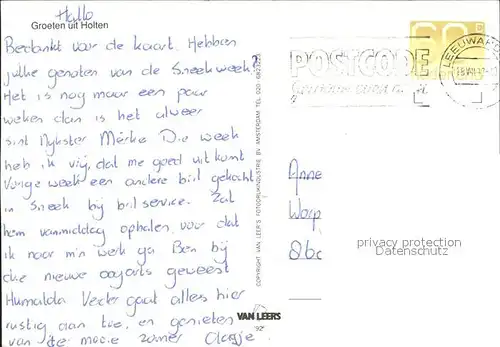 Hallo
Groeten uit Holten
Bedankt voor de kaart. Hebben
jullie genoten van de Sneekweek?
Het is nog maar een paar
weken dan is het alweer
sint Nykster Merke Die week
heb ik vrij, dat me goed uitkomt
Vorige week een andere bril gekocht
in Sneek bij brilservice. Zal
hem vanmiddag ophalen, voor dat
ik naar m'n werk ga Ben bij
die nieuwe oogarts geweest
Humalda Verder gaat alles hier
rustig aan toe, en genieten
van de mooie zomer
COPYRIGHT VAN LEER'S FOTODRUKINDUSTRIE BV AMSTERDAM TEL. 020
VAN LEERS
92
POSTCODE
LEEUWARD
60
Anne
Worp
privacy protection
Datenschutz